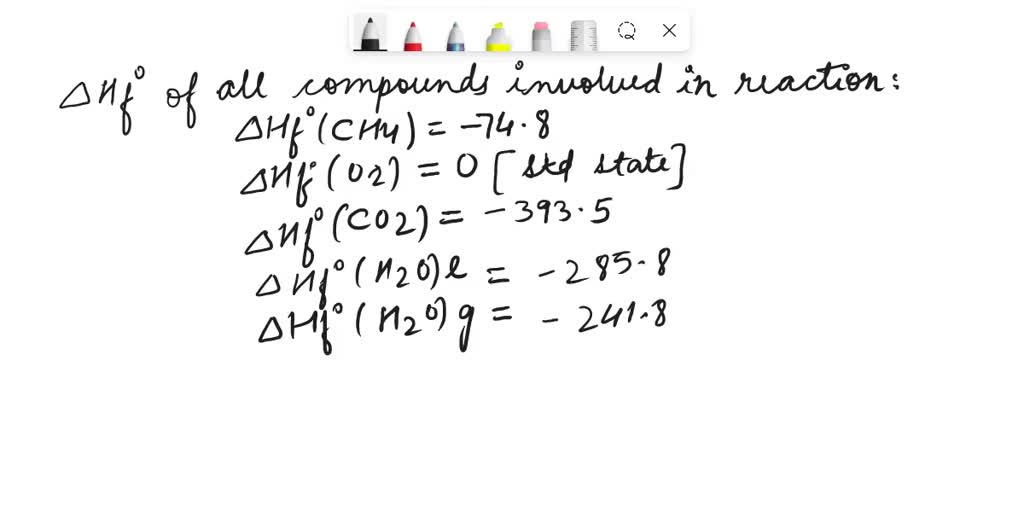 ΔHf° of all compounds involved in reaction:
ΔHf°(CH4) = -74.8
ΔHf°(O2) = 0 [std state]
ΔHf°(CO2) = -393.5
ΔHf°(H2O)l = -285.8
ΔHf°(H2O)g = -241.8